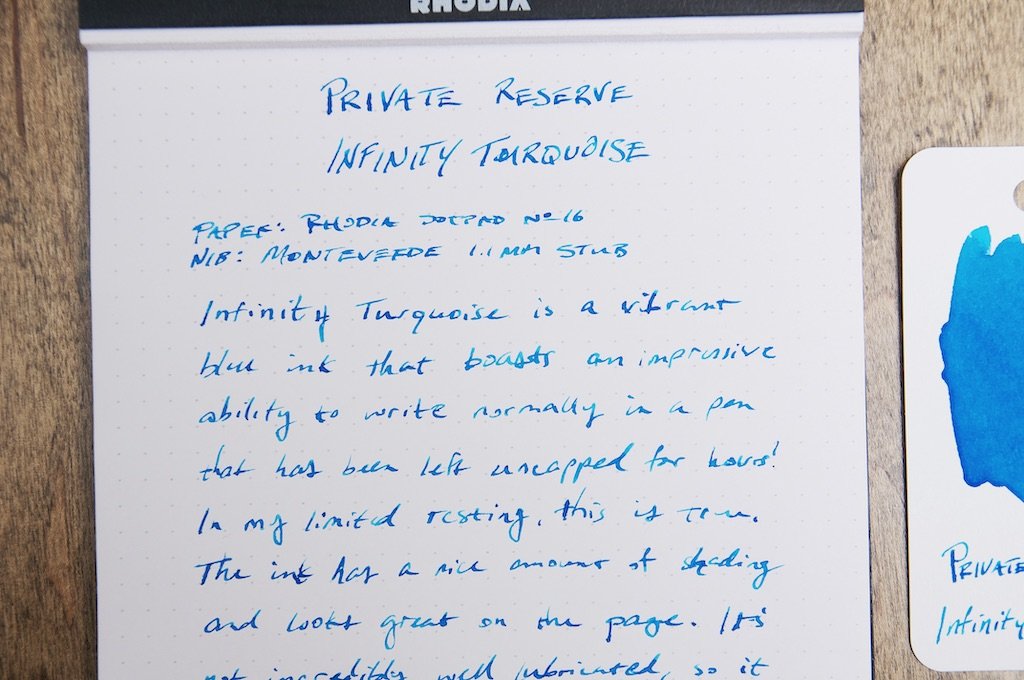 RHODIA
PRIVATE RESERVE
INFINITY TURQUOISE
PAPER: RHODIA DOTPAD No 16
NIB: MONTEVERDE 1.1 MM STUB
Infinity Turquoise is a vibrant
blue ink that boasts an impressive
ability to write normally in a pen
that has been left uncapped for hours!
In my limited testing, this is true.
The ink has a nice amount of shading
and looks great on the page. It's
not incredibly well lubricated, so it
PRIVATE
Infinity